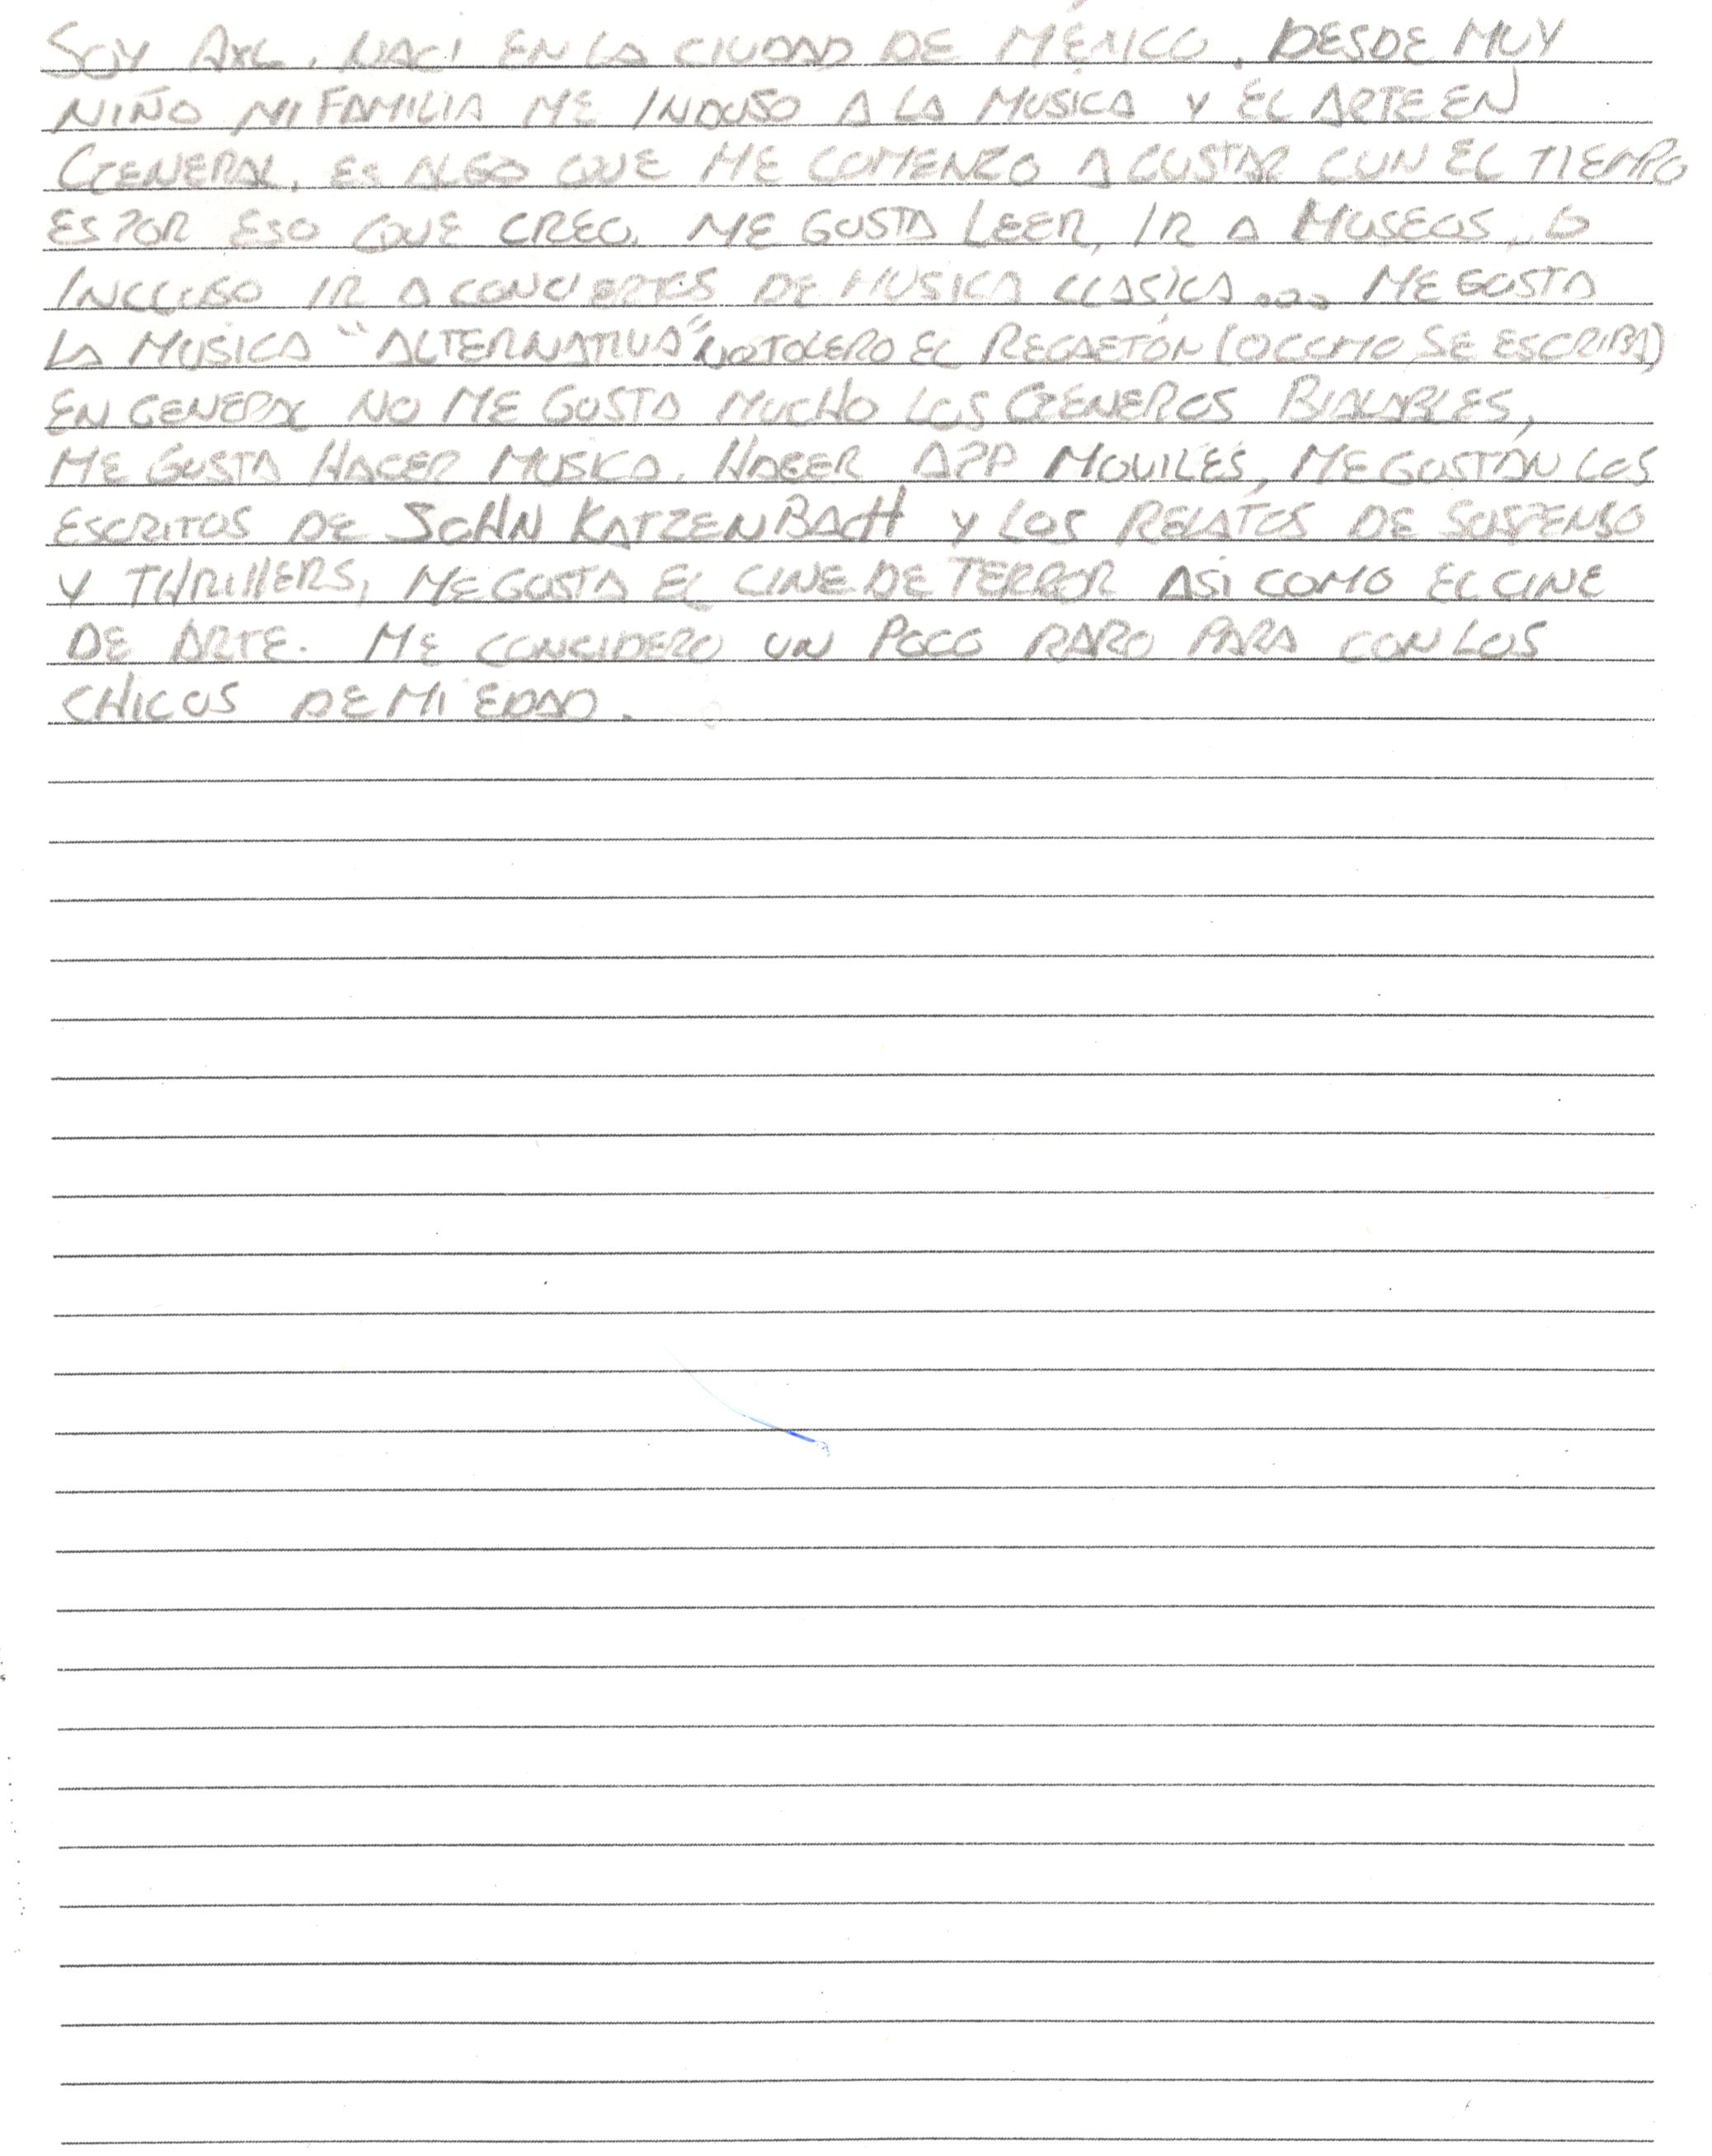 SOY AXL. NACI EN LA CIUDAD DE MÉXICO. DESDE MUY
NIÑO MI FAMILIA ME INDUSO A LA MUSICA Y EL ARTE EN
GENERAL, ES ALGO QUE ME COMENZO A GUSTAR CON EL TIEMPO
ES POR ESO QUE CREO. ME GUSTA LEER, IR A MUSEOS, O
INCLUSO IR A CONCIERTOS DE MUSICA CLASICA... ME GUSTA
LA MUSICA "ALTERNATIVA" NO TOLERO EL REGAETÓN (O COMO SE ESCRIBA)
EN GENERAL NO ME GUSTA MUCHO LOS GENEROS BIALABLES,
ME GUSTA HACER MUSICA. HACER APP MOVILES, ME GUSTAN LOS
ESCRITOS DE JOHN KATZENBACH Y LOS RELATOS DE SUSPENSO
Y THRILLERS, ME GUSTA EL CINE DE TERROR ASI COMO EL CINE
DE ARTE. ME CONCIDERO UN POCO RARO PARA CON LOS
CHICOS DE MI EDAD.